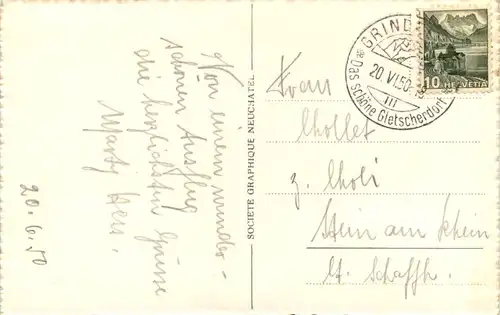 Von einem wunder-
schönen Ausflug
die herzlichsten Grüsse
Marty
20.6.50
SOCIETE GRAPHIQUE NEUCHATEL
GRIND
20.VI.50
Das schöne Gletscherdorf
III
10 HELVETIA
Frau
Chollet
z. Choli
Stein am Rhein
Kt. Schaffh.